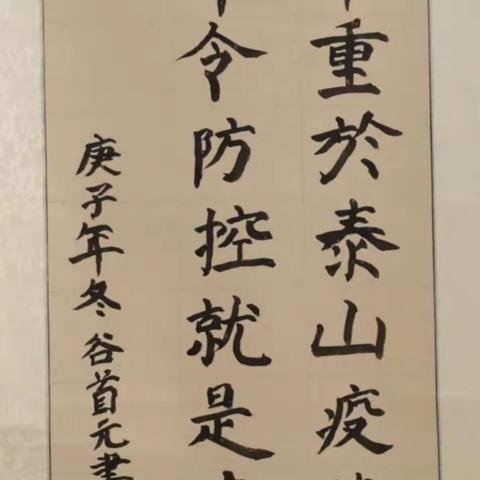 重於泰山疫
令防控就是
庚子年冬谷首元書